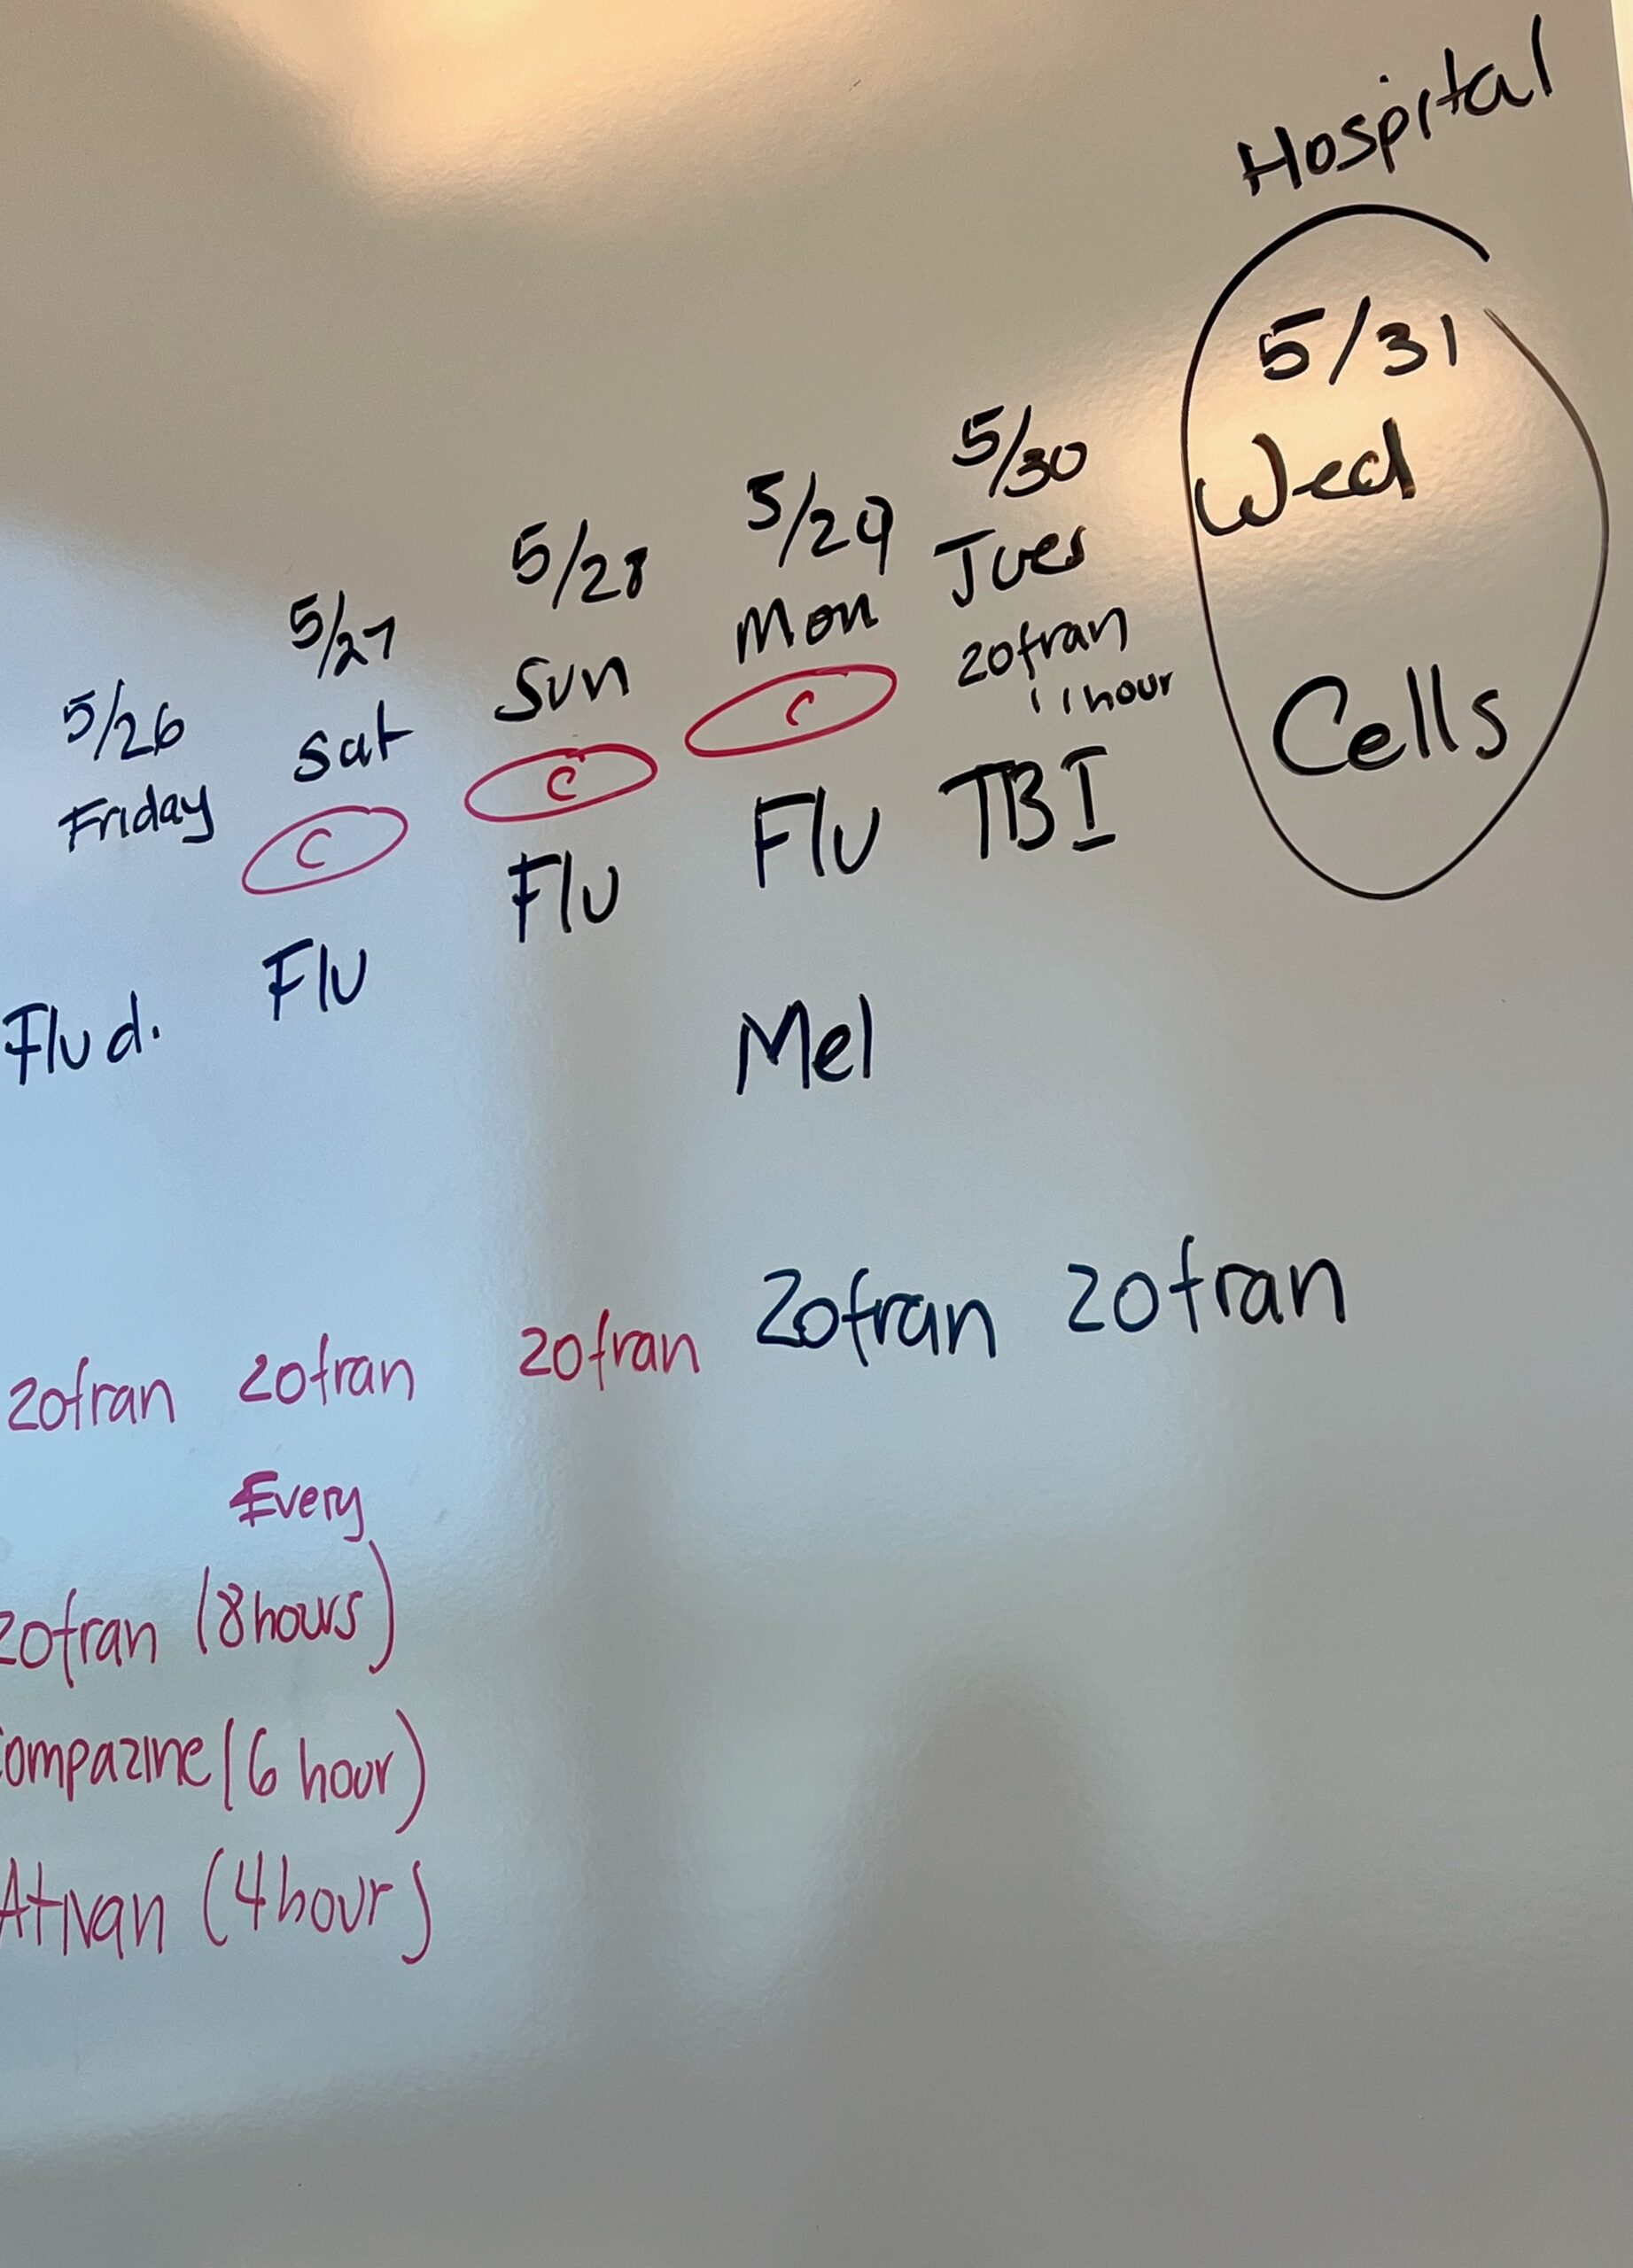 Hospital
5/31
Wed
Cells
5/30
Tues
zofran
1 hour
TBI
5/29
Mon
C
Flu
Mel
5/28
Sun
C
Flu
5/27
Sat
C
Flu
5/26
Friday
Flud.
zofran zofran zofran Zofran zofran
Every
zofran (8hours)
Compazine (6 hour)
Ativan (4hour)